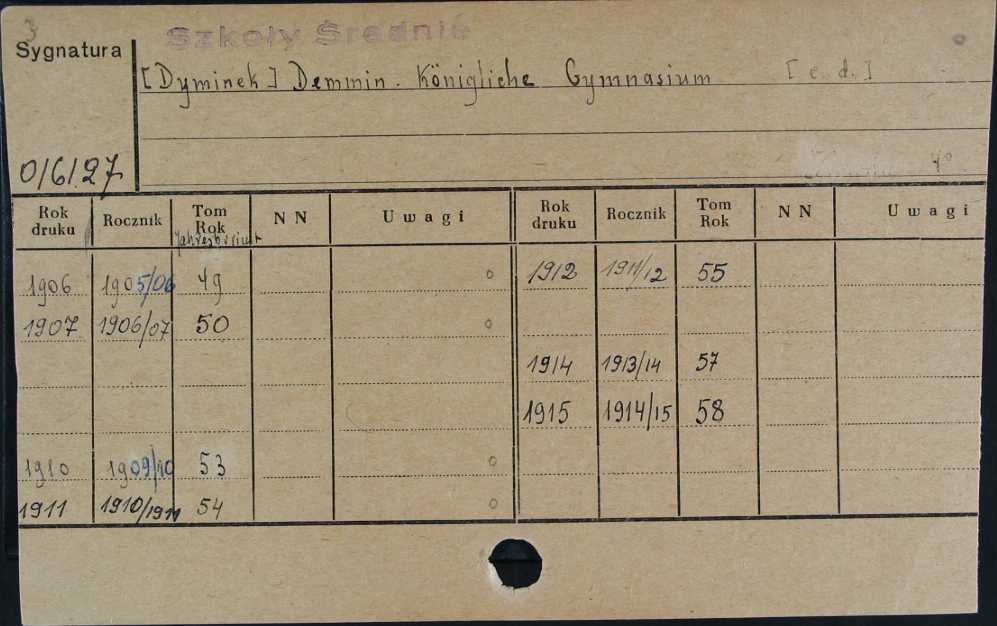 3
Szkoły Średnie
Sygnatura
[Dyminek] Demmin. Königliche Gymnasium [c. d.]
0/6/27
4°
Rok druku Rocznik Tom Rok NN Uwagi Rok druku Rocznik Tom Rok NN Uwagi
Jahresbericht
1906 1905/06 49 o 1912 1911/12 55
1907 1906/07 50 o
1914 1913/14 57
1915 1914/15 58
1910 1909/10 53 o
1911 1910/1911 54 o